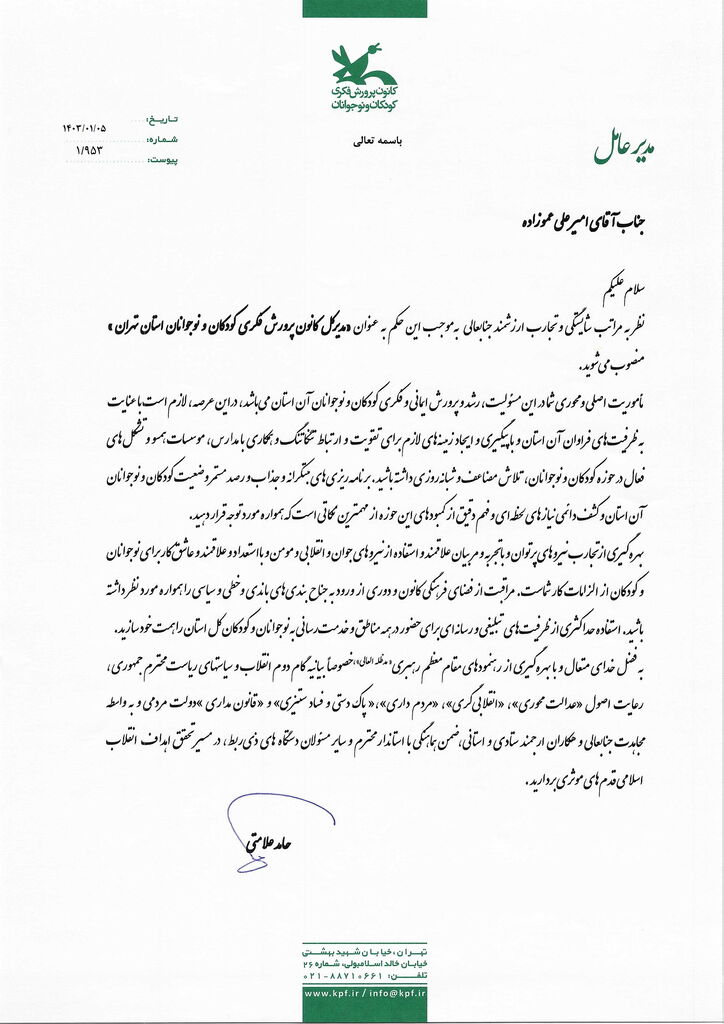 کانون پرورش فکری
کودکان و نوجوانان
تاریخ: ۱۴۰۳/۰۱/۰۵
شماره: ۱/۹۵۳
پیوست:
باسمه تعالی
مدیر عامل
جناب آقای امیرعلی عموزاده
سلام علیکم
نظر به مراتب شایستگی و تجارب ارزشمند جنابعالی به موجب این حکم به عنوان «مدیرکل کانون پرورش فکری کودکان و نوجوانان استان تهران»
منصوب می شوید.
مأموریت اصلی و محوری شما در این مسئولیت، رشد و پرورش ایمانی و فکری کودکان و نوجوانان آن استان می باشد، در این عرصه، لازم است با عنایت
به ظرفیت های فراوان آن استان و با پیگیری و ایجاد زمینه های لازم برای تقویت و ارتباط تنگاتنگ و همکاری با مدارس، موسسات همسو و تشکل های
فعال در حوزه کودکان و نوجوانان، تلاش مضاعف و شبانه روزی داشته باشید. برنامه ریزی های مبتکرانه و جذاب و رصد مستمر وضعیت کودکان و نوجوانان
آن استان و کشف دائمی نیازهای لحظه ای و فهم دقیق از کمبودهای این حوزه از مهمترین نکاتی است که همواره مورد توجه قرار دهید.
بهره گیری از تجارب نیروهای پرتوان و با تجربه و مربیان علاقمند و استفاده از نیروهای جوان و انقلابی و مومن و با استعداد و علاقمند و عاشق کار برای نوجوانان
و کودکان از الزامات کار شماست. مراقبت از فضای فرهنگی کانون و دوری از ورود به جناح بندی های باندی و خطی و سیاسی را همواره مورد نظر داشته
باشید. استفاده حداکثری از ظرفیت های تبلیغی و رسانه ای برای حضور در همه مناطق و خدمت رسانی به نوجوانان و کودکان کل استان را همت خود سازید.
به فضل خدای متعال و با بهره گیری از رهنمودهای مقام معظم رهبری «مدظله العالی»، خصوصاً بیانیه گام دوم انقلاب و سیاستهای ریاست محترم جمهوری،
رعایت اصول «عدالت محوری»، «انقلابی گری»، «مردم داری»، «پاک دستی و فساد ستیزی» و «قانون مداری» دولت مردمی و به واسطه
مجاهدت جنابعالی و همکاران ارجمند ستادی و استانی، ضمن هماهنگی با استاندار محترم و سایر مسئولان دستگاه های ذی ربط، در مسیر تحقق اهداف انقلاب
اسلامی قدم های موثری بردارید.
حامد علامتی
تهران، خیابان شهید بهشتی
خیابان خالد اسلامبولی، شماره ۲۶
تلفن: ۰۲۱-۸۸۷۱۰۶۶۱
www.kpf.ir / info@kpf.ir